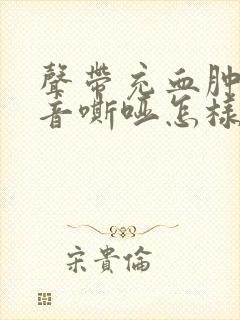 聲帶充血肿
音嘶哑怎樣
宋貴倫